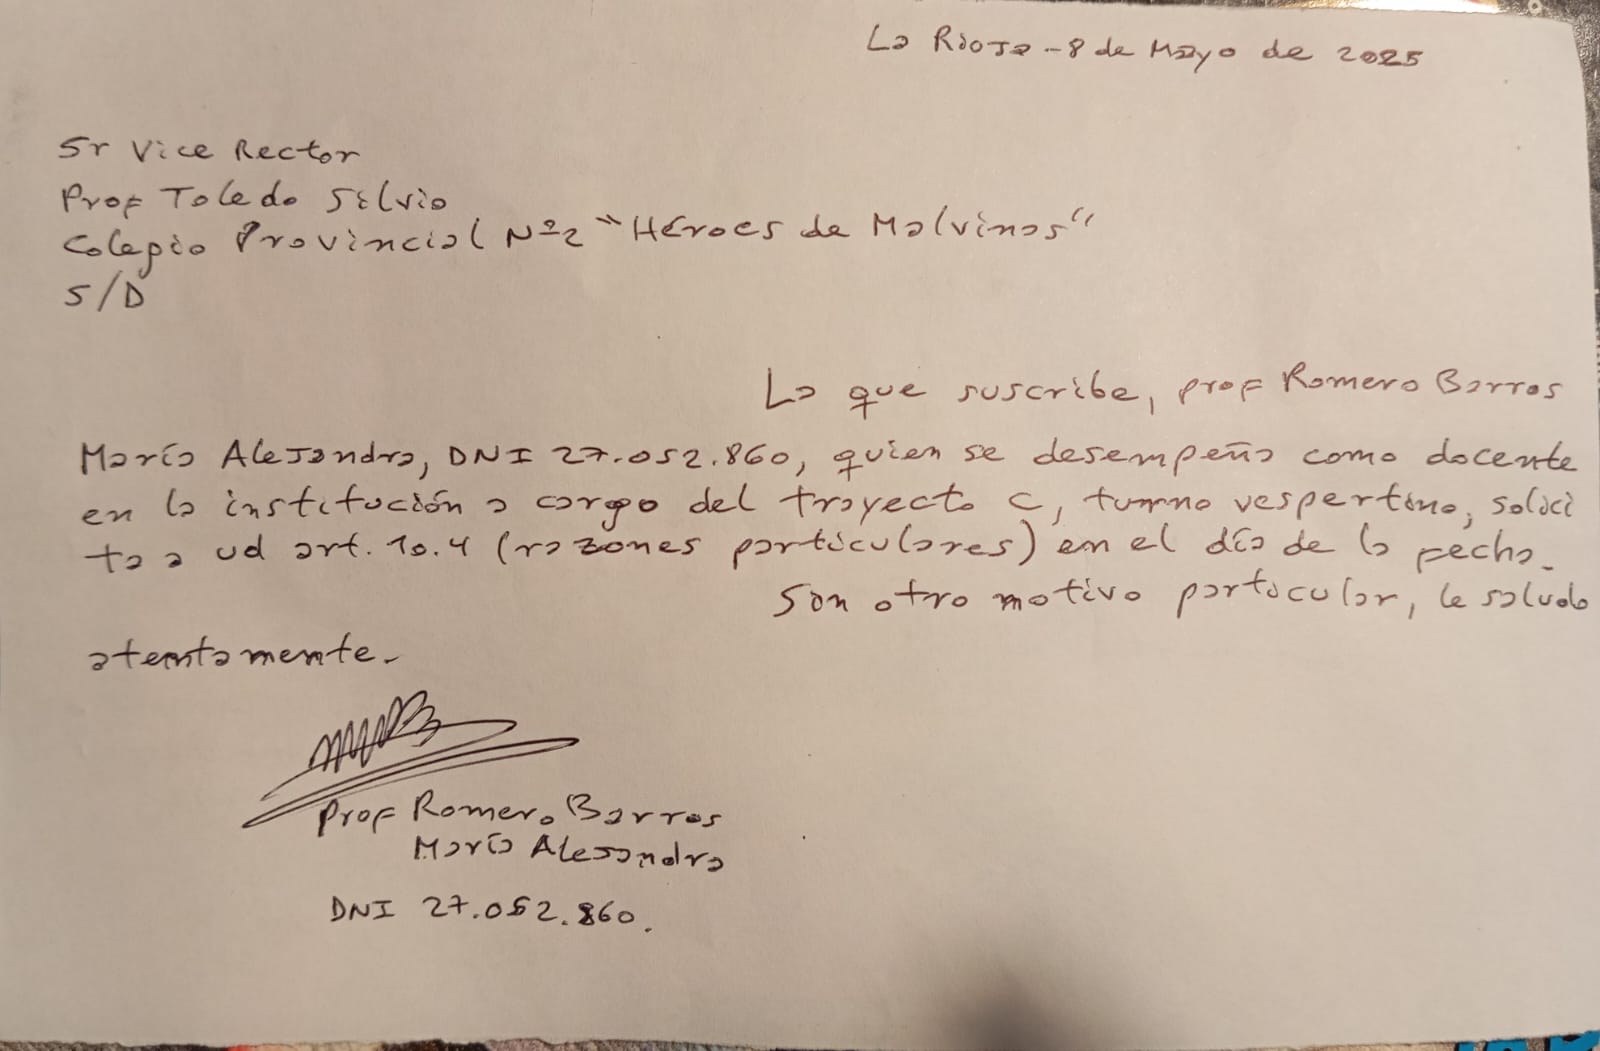 La Rioja - 8 de Mayo de 2025
Sr Vice Rector
Prof Toledo Silvio
Colegio Provincial Nº2 "Héroes de Malvinas"
S/D
La que suscribe, prof Romero Barros
María Alejandra, DNI 27.052.860, quien se desempeña como docente
en la institución a cargo del trayecto C, turno vespertino, solici
ta a ud art. 10.4 (razones particulares) en el día de la fecha.
Sin otro motivo particular, le saluda
atentamente.
Prof Romero Barros
María Alejandra
DNI 27.052.860.